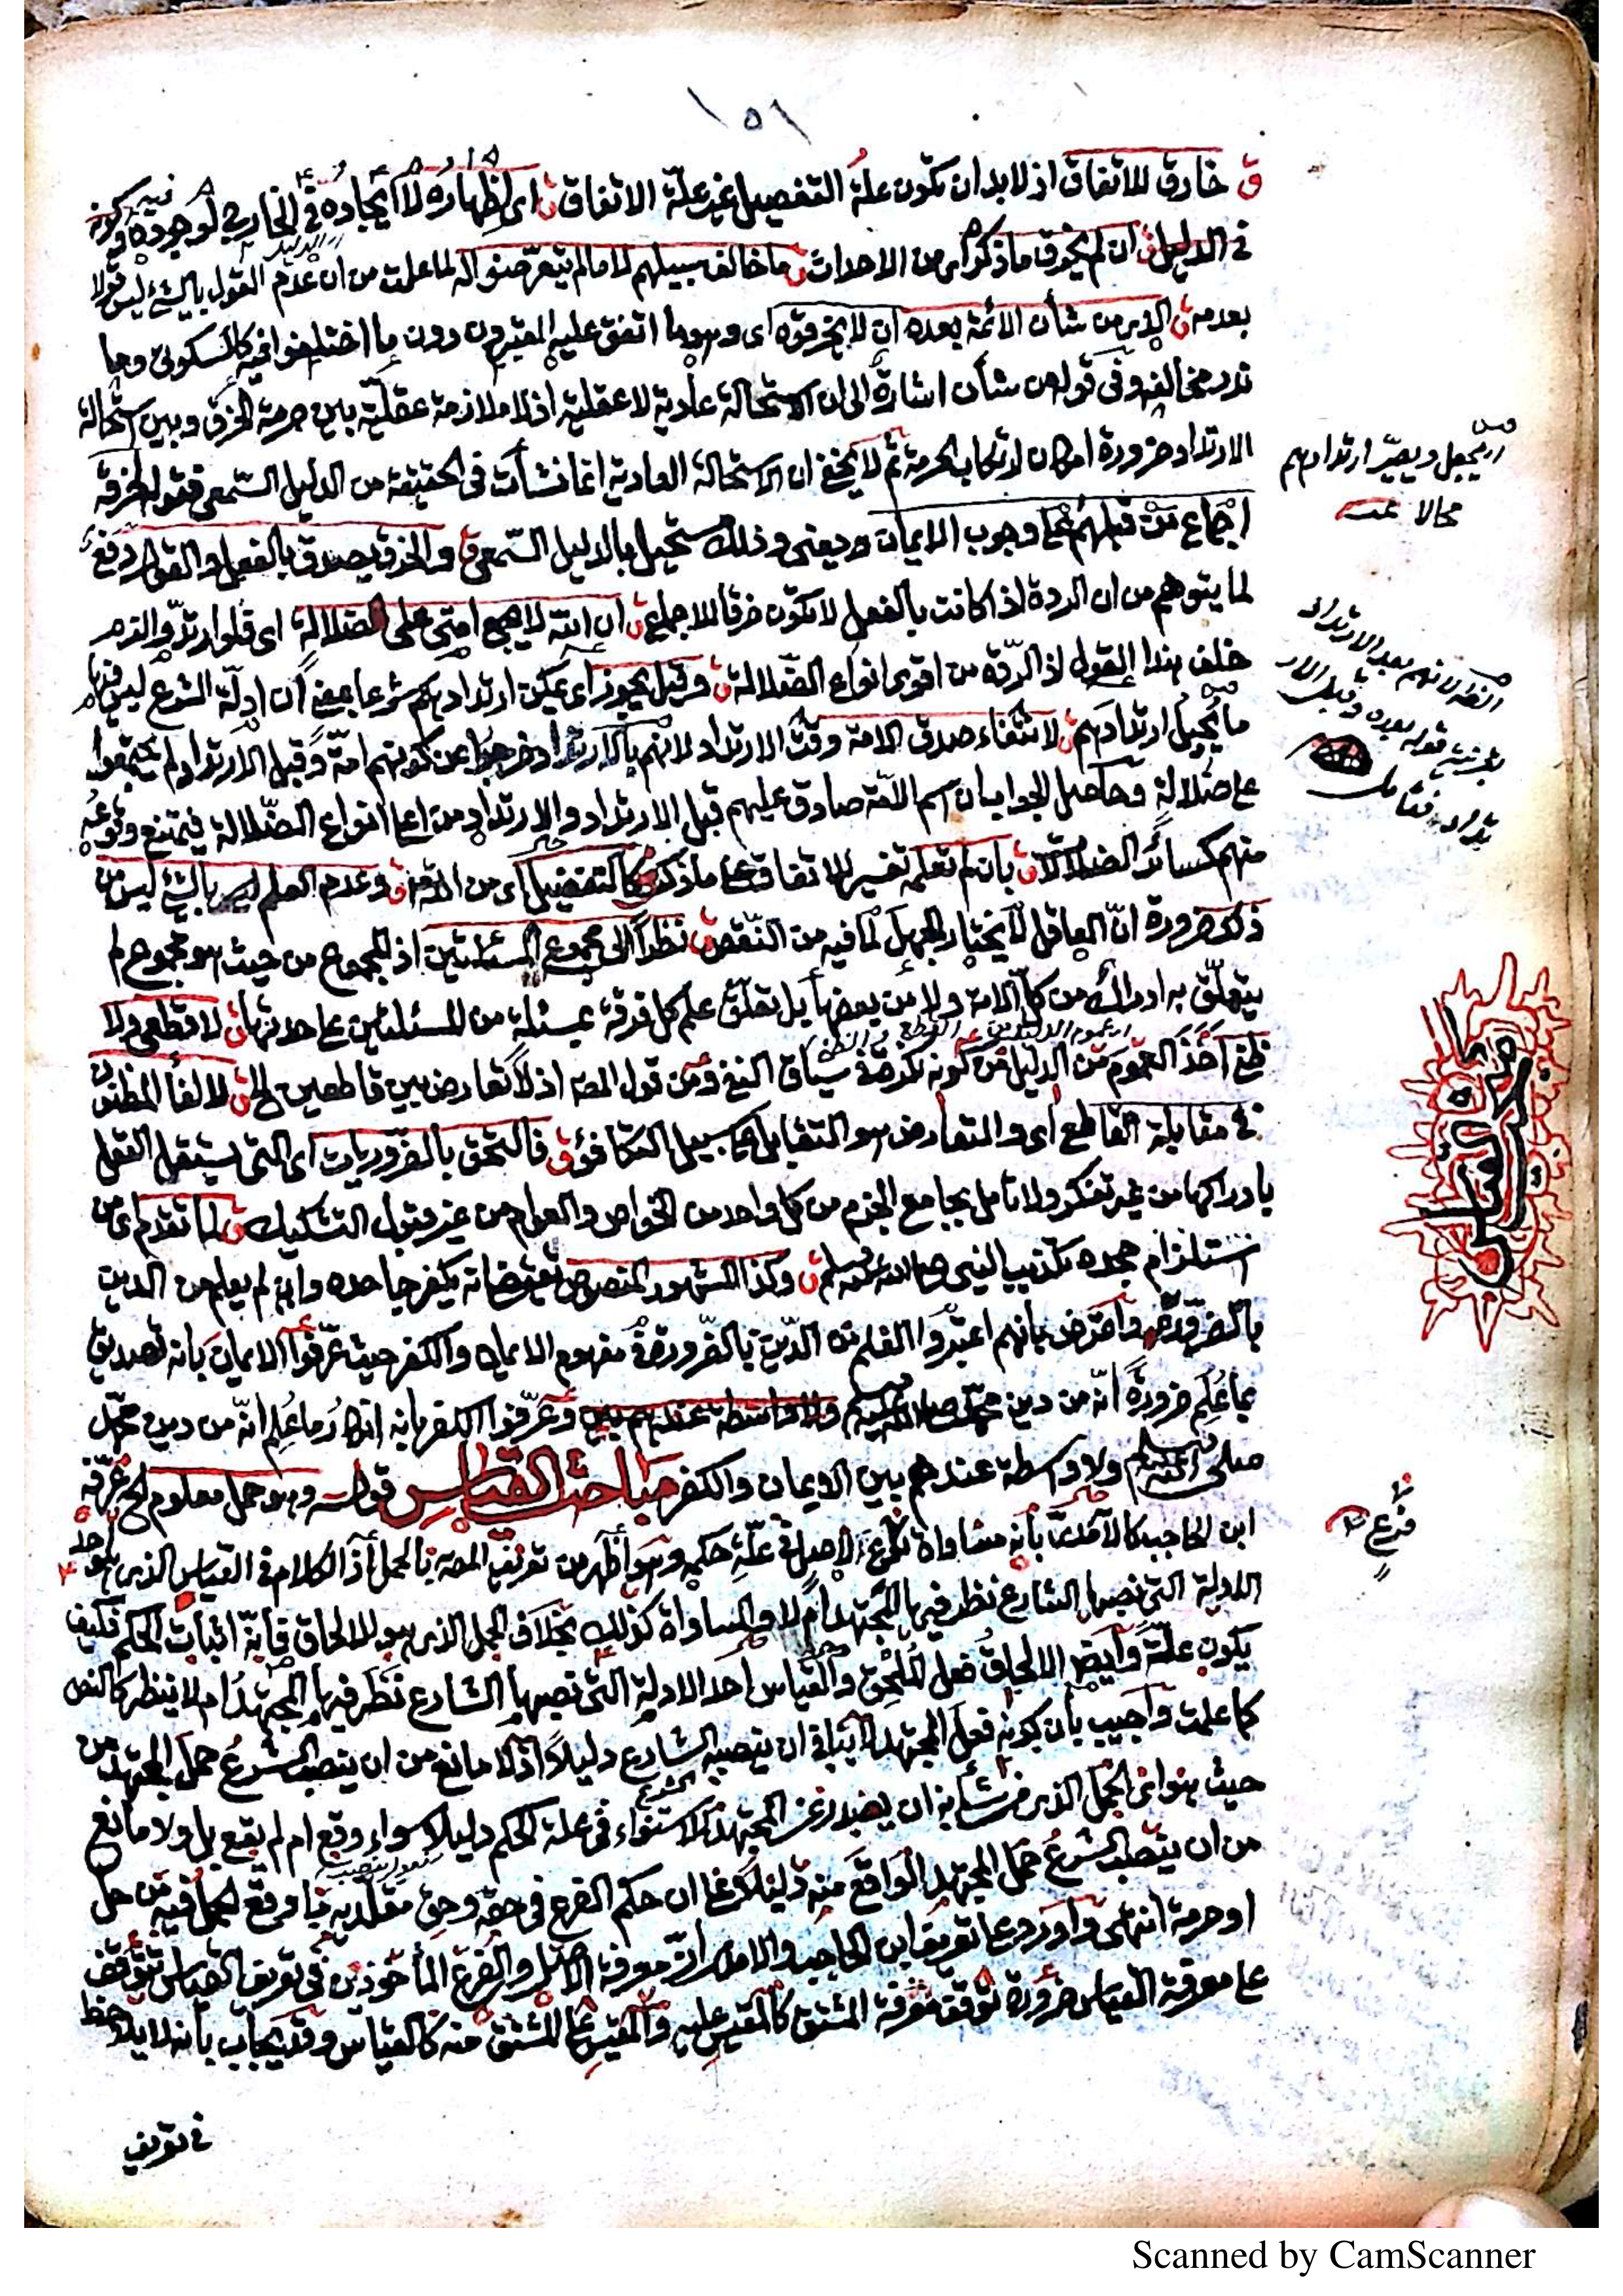 ١٥١
ق خارق للاتفاق اذ لا بد ان تكون علة التفصيل غير علة الاتفاق ق اى اظهاره لا ايجاده في الخارج لوجوده
في الدليل ق ان لم يخرق ما ذكر اى من الاحداث ق ما خالف سبيلهم لا ما لم يتعرضوا له لما علمت من ان عدم القول بالشئ ليس قولا
بعدمه ق الذى من شأن الائمة بعده ان لا يخرقوه اى وهو ما اتفق عليه المعتبرون دون ما اختلفوا فيه كالسكوتى وما
ندر مخالفه وفى قوله من شأن اشارة الى ان الاستحالة عادية لا عقلية اذ لا ملازمة عقلية بين حرمة الخرق وبين استحالة
الارتداد ضرورة امكان ارتكاب الحرمة ثم لا يخفى ان الاستحالة العادية انما نشأت فى الحقيقة من الدليل السمعى فقوله لخرقه
اجماع من قبلهم على وجوب الايمان يعنى وذلك مستحيل بالدليل السمعى ق والخرق يصدق بالفعل والقول دفع
لما يتوهم من ان الردة اذا كانت بالفعل لا تكون خرقا للاجماع ق ان الله لا يجمع امتى على الضلالة اى فلو ارتدوا لزم
خلف هذا القول اذ الردة من اقوى انواع الضلالة ق وقيل يجوز اى يمكن ارتدادهم شرعا بمعنى ان ادلة الشرع ليس فيها
ما يحيل ارتدادهم ق لانتفاء صدق الامة وقت الارتداد لانهم بالارتداد خرجوا عن كونهم امة وقبل الارتداد لم يجتمعوا
على ضلالة وحاصل الجواب ان اسم الامة صادق عليهم قبل الارتداد والارتداد من اعلى انواع الضلالة فيمتنع وقوعه
منهم كسائر الضلالات ق بان لم تعلمه تفسير للاتفاق على ما ذكر ق كالتفضيل اى من الامة ق وعدم العلم بالشئ ليس من
ذلك ضرورة ان العاقل لا يختار الجهل لما فيه من النقص ق نظرا الى مجموع المسئلتين اذ المجموع من حيث هو مجموع لم
يتعلق به ادراك من كل الامة ولا من بعضها بل تعلق علم كل فرقة بمسئلة من المسئلتين على حدتها ق لا قطعى ولا
ظنى اخذ العموم من الدليل من كونه نكرة في سياق النفى ومن قول المص اذ لا تعارض بين قاطعين الخ ق لالغاء المظنون
في مقابلة القاطع اى والتعارض هو التقابل على سبيل التكافؤ ق فالتحق بالضروريات اى التى يستقل العقل
بادراكها من غير تفكر ولا تأمل بجامع الجزم من كل واحد من الخواص والعوام من غير قبول التشكيك ق لما تقدم اى من
استلزام جحده تكذيب النبى صلى الله عليه وسلم ق وكذا المشهور المنصوص يقتضى انه يكفر جاحده وان لم يعلم من الدين
بالضرورة واعترض بانهم اعتبروا العلم من الدين بالضرورة في مفهوم الايمان والكفر حيث عرفوا الايمان بانه تصديق
بما علم ضرورة انه من دين محمد صلى الله عليه وسلم وعرفوا الكفر بانه انكار ما علم انه من دين محمد
صلى الله عليه وسلم ولا واسطة عندهم بين الايمان والكفر مباحث القياس قوله وهو حمل معلوم الخ عرفه
ابن الحاجب كالآمدى بأنه مساواة فرع الاصل في علة حكمه وهو أظهر من تعريف المص بالحمل أذ الكلام فى القياس الذى هو احد
الادلة التى نصبها الشارع نظر فيها المجتهد أم لا والمساواة كذلك بخلاف الحمل الذى هو الالحاق فأنه اثبات الحكم فكيف
يكون علة وأيضا الالحاق فعل الملحق والقياس احد الادلة التى نصبها الشارع نظر فيها المجتهد ام لا ينظر كالنص
كما علمت واجيب بأن كونه فعل المجتهد لا ينافى ان ينصبه الشارع دليلا اذ لا مانع من ان ينصب الشرع حمل المجتهد من
حيث هو اى الحمل الذى من شأنه ان يصدر عن المجتهد للاستواء فى علة الحكم دليلا سواء وقع ام لم يقع بل ولا مانع
من ان ينصب الشرع حمل المجتهد الواقع منه دليلا على ان حكم الفرع فى حقه وحق مقلديه ما وقع الحمل فيه من حل
او حرمة انتهى واورد على تعريف ابن الحاجب والآمدى ان معرفة الاصل والفرع المأخوذين فى تعريف القياس تتوقف
على معرفة القياس ضرورة توقف معرفة المشتق كالمقيس عليه والمقيس على المشتق منه كالقياس وقد يجاب بأنه لا يلاحظ
في تعريف
اى يجعل ويصير ارتدادهم
محالا
فرع
Scanned by CamScanner